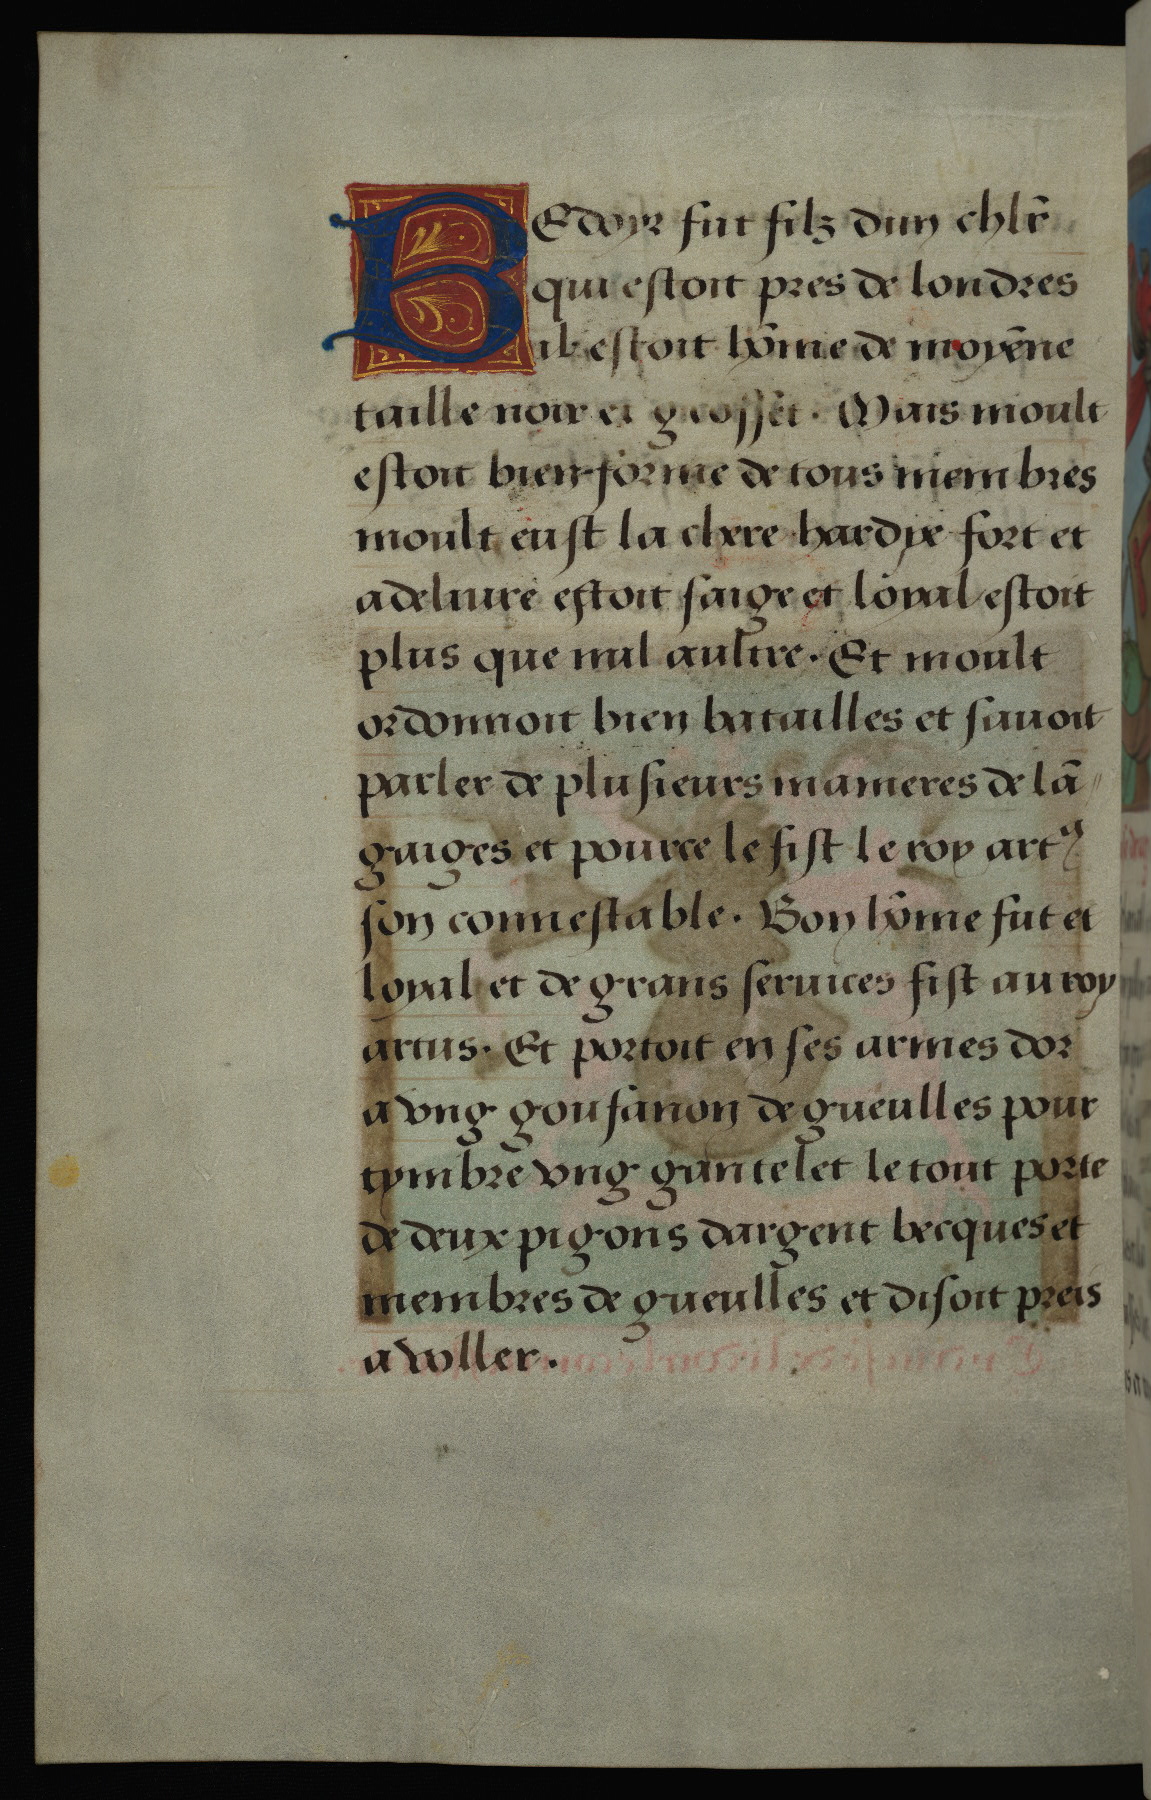 BEdoyr fut filz dun chlr̄
qui estoit pres de londres
il estoit hōme de moyēne
taille noir et grosset. Mais moult
estoit bien forme de tous membres
moult eust la chere hardye fort et
adeliure estoit saige et loyal estoit
plus que nul aultre. Et moult
ordonnoit bien batailles et sauoit
parler de plusieurs manieres de lā
gaiges et pource le fist le roy artꝰ
son connestable. Bon hōme fut et
loyal et de grans seruices fist au roy
artus. Et portoit en ses armes dor
a vng goufanon de gueulles pour
tymbre vng gantelet le tout porte
de deux pigons dargent becques et
membres de gueulles et disoit preis
a voller.